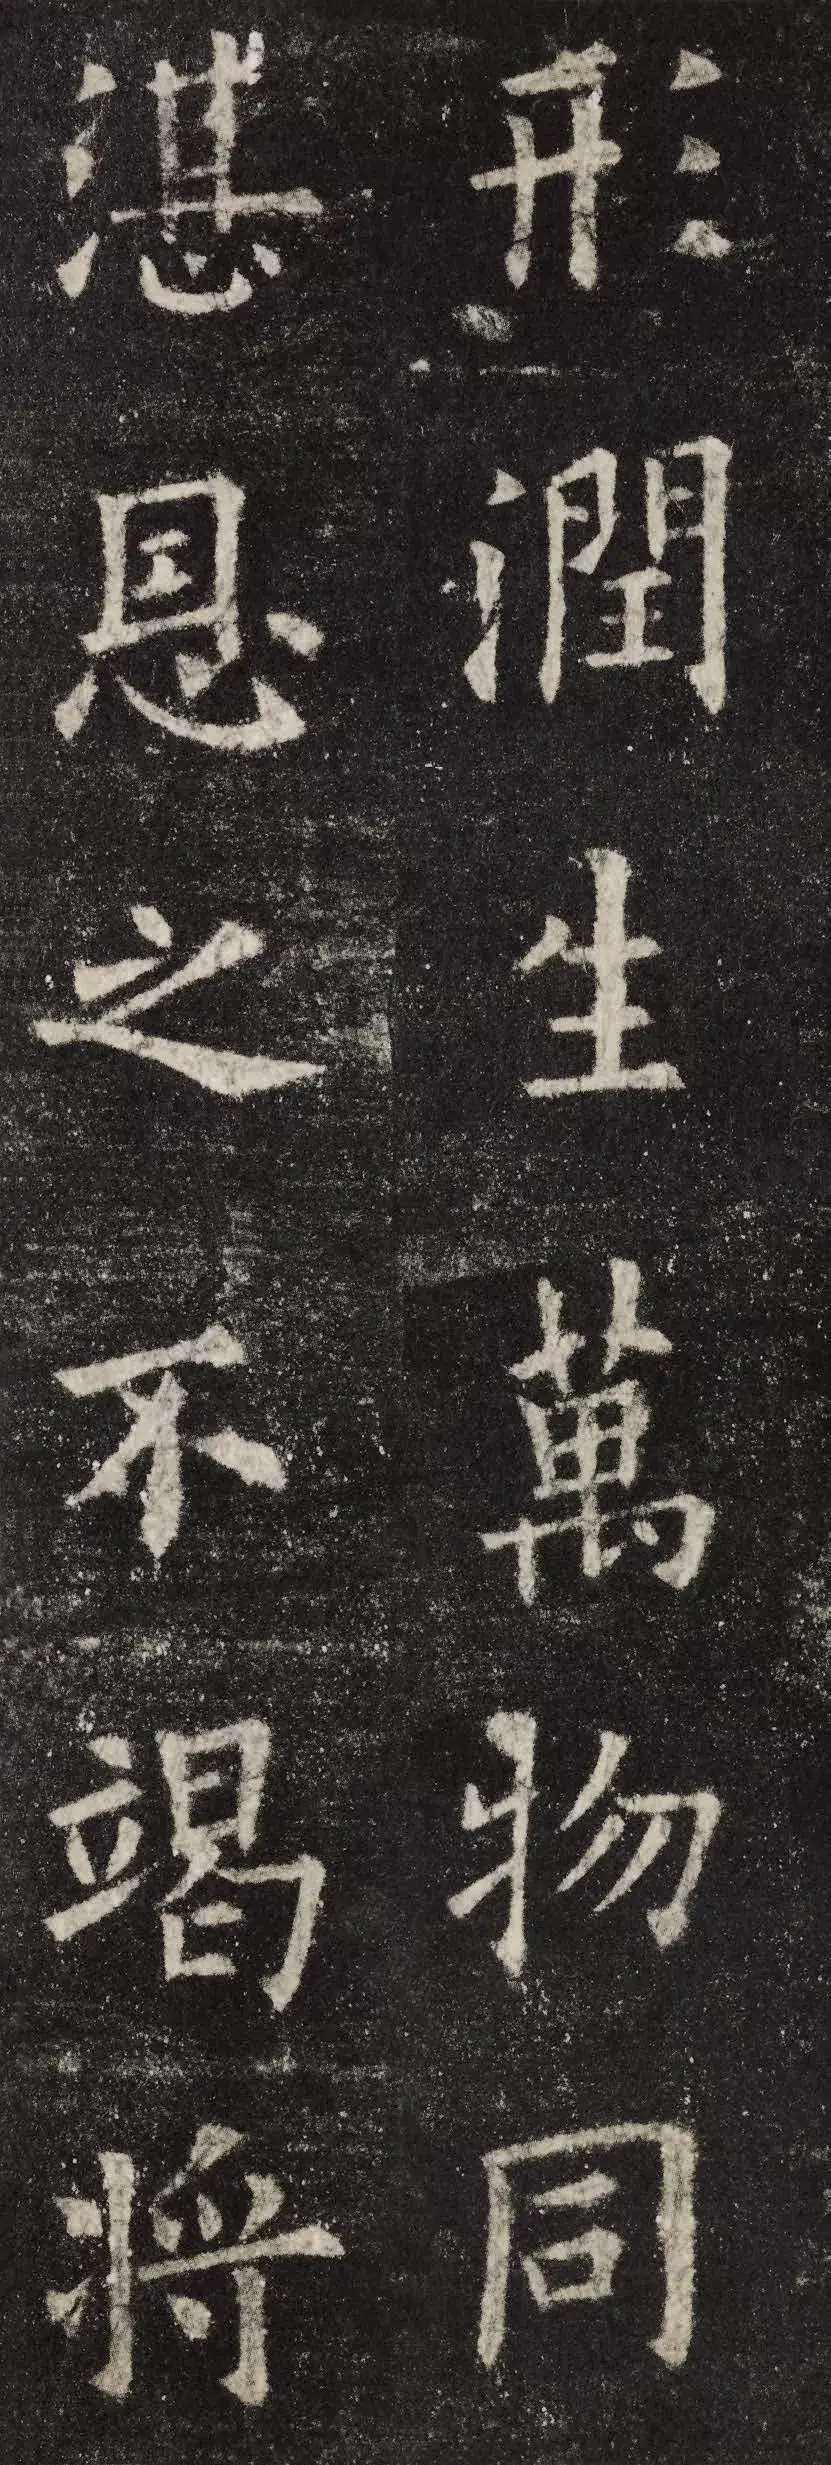 形潤生萬物同
湛恩之不竭將